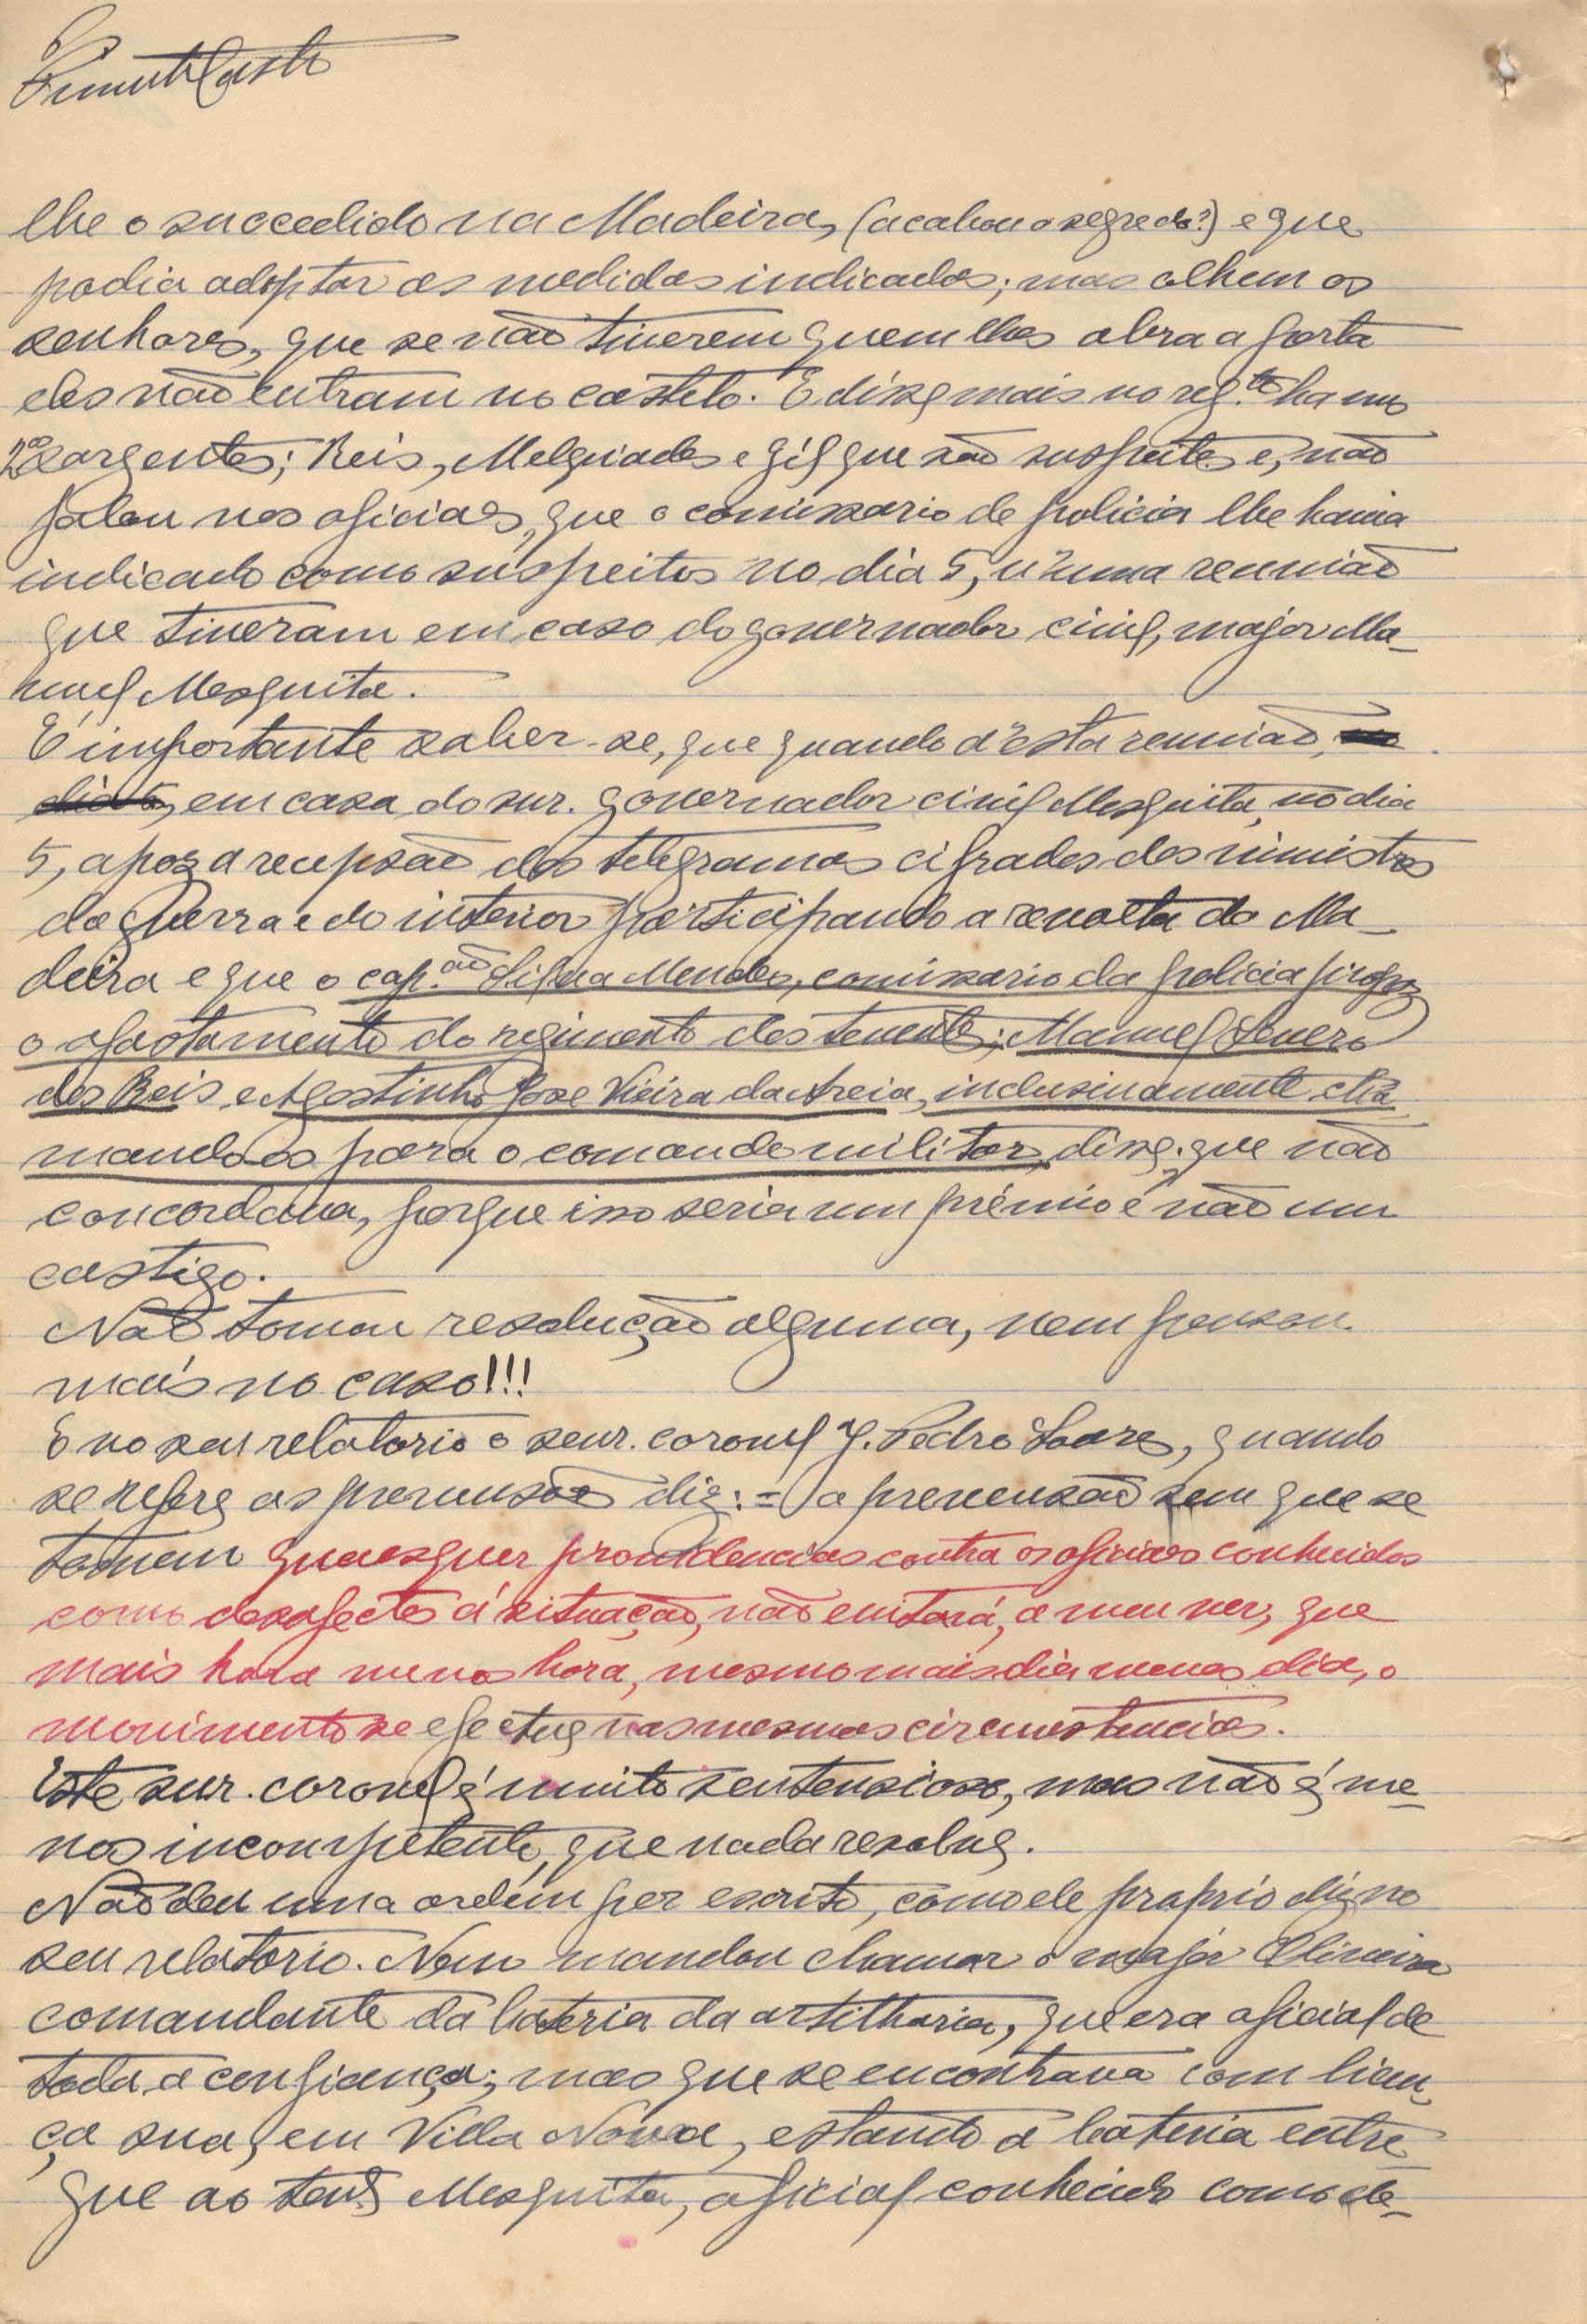 Pimenta Castro
lhe o succedido na Madeira, (acabou o segredo?) e que
podia adoptar as medidas indicadas; mas olhem os
senhores, que se não tiverem quem lhes abra a porta
eles não entram no castelo. E disse mais no reg.to ha uns
2os sargentos; Reis, Melquiades e Gil que são suspeitos e, não
falou nos oficiaes, que o comissario de policia lhe havia
indicado como suspeitos no dia 5, n'uma reunião
que tiveram em casa do governador civil, major Ma-
nuel Mesquita.
É importante saber-se, que quando d'esta reunião, no
dia 5, em casa do snr. governador civil Mesquita, no dia
5, apoz a recepsão dos telegramas cifrados dos ministros
da guerra e do interior participando a revolta da Ma-
deira e que o cap.ão Silva Mendes, comissario da policia propoz
o afastamento do regimento dos tenentes; Manuel Severo
dos Reis e Agostinho José Vieira da Areia, inclusivamente cha
mando-os para o comando militar, disse que não
concordava, porque isso seria um prémio e não um
castigo.
Não tomou resolução alguma, nem pensou
mais no caso!!!
E no seu relatorio o senr. coronel J. Pedro Soares, quando
se refere as prevensões diz: = a prevensão sem que se
tomem quaesquer providencias contra os oficiaes conhecidos
como desafectos á situação, não evitará, a meu ver, que
mais hora menos hora, mesmo mais dia menos dia, o
movimento se efectue nas mesmas circunstancias.
Este snr. coronel é muito sentensioso, mas não é me-
nos incompetente, que nada resolve.
Não deu uma ordem por escrito, como ele proprio diz no
seu relatorio. Nem mandou chamar o major Oliveira
comandante da bateria da artilharia, que era oficial de
toda a confiança; mas que se encontrava com licen-
ça sua, em Villa Nova, estando a bateria entre
gue ao tene Mesquita, oficial conhecido como de-